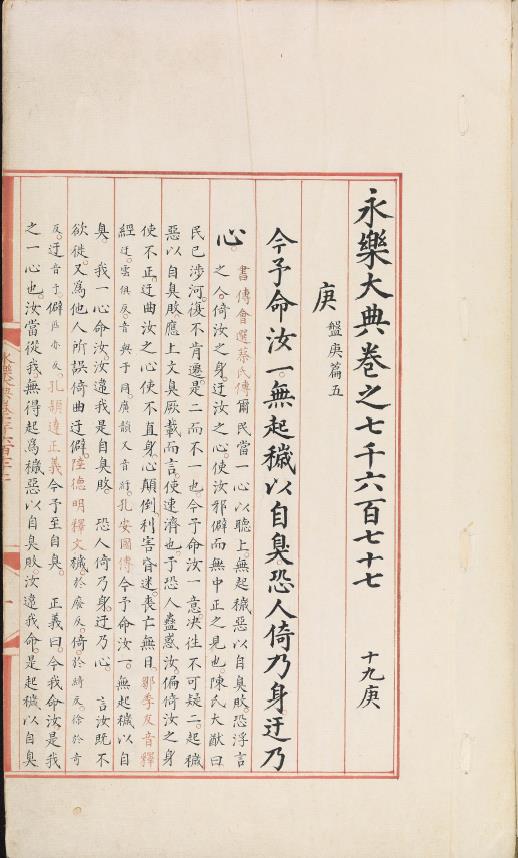 永樂大典卷之七千六百七十七 十九庚
庚 盤庚篇五
今予命汝一無起穢以自臭恐人倚乃身迂乃
心 書傳會選蔡氏傳爾民當一心以聽上無起穢惡以自臭敗恐浮言
之人倚汝之身迂汝之心使汝邪僻而無中正之見也陳氏大猷曰
民已涉河復不肯遷是二而不一也今予命汝一意決往不可疑二起穢
惡以自臭敗應上文臭厥載而言使速濟也予恐人蠱惑汝偏倚汝之身
使不正迂曲汝之心使不直身心顛倒利害昏迷喪亡無日鄒季友音釋
經迂雲俱反音與于同廣韻又音紆孔安國傳今予命汝一無起穢以自
臭 我一心命汝汝違我是自臭敗 恐人倚乃身迂乃心 言汝既不
欲徙又爲他人所誤倚曲迂僻陸德明釋文穢於廢反倚於綺反徐於奇
反迂音于僻匹亦反孔穎達正義今予至自臭 正義曰今我命汝是我
之一心也汝當從我無得起爲穢惡以自臭敗汝違我命是起穢以自臭